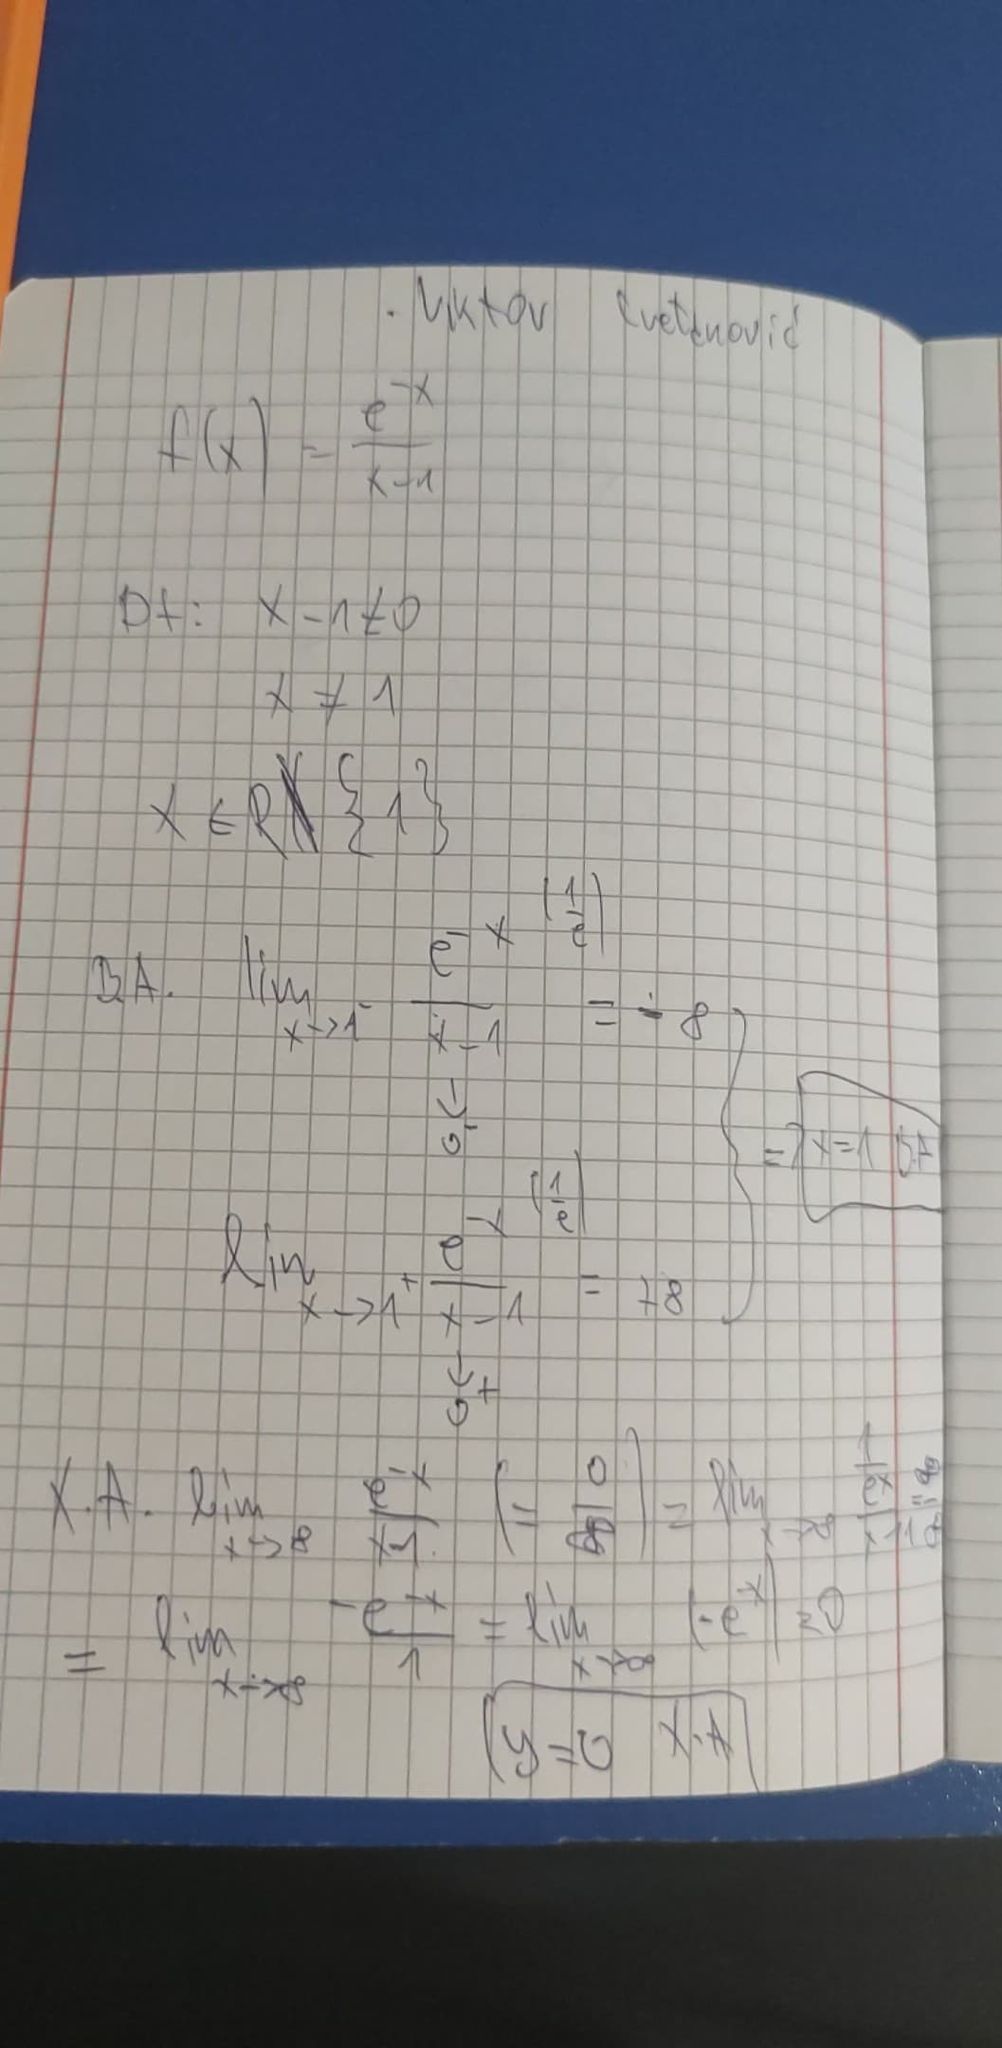 Viktor Cvetanović
f(x) = e^-x / x-1
Df: x-1≠0
x ≠ 1
x ∈ R\{1}
B.A. lim x→1^- e^-x / x-1 (1/e) = -∞
→ 0^-
=> x=1 B.A
lim x→1^+ e^-x / x-1 (1/e) = +∞
→ 0^+
X.A. lim x→∞ e^-x / x-1 (= 0/∞) = lim x→∞ 1/e^x / x-1
= lim x→∞ -e^-x / 1 = lim x→∞ (-e^-x) = 0
y=0 X.A